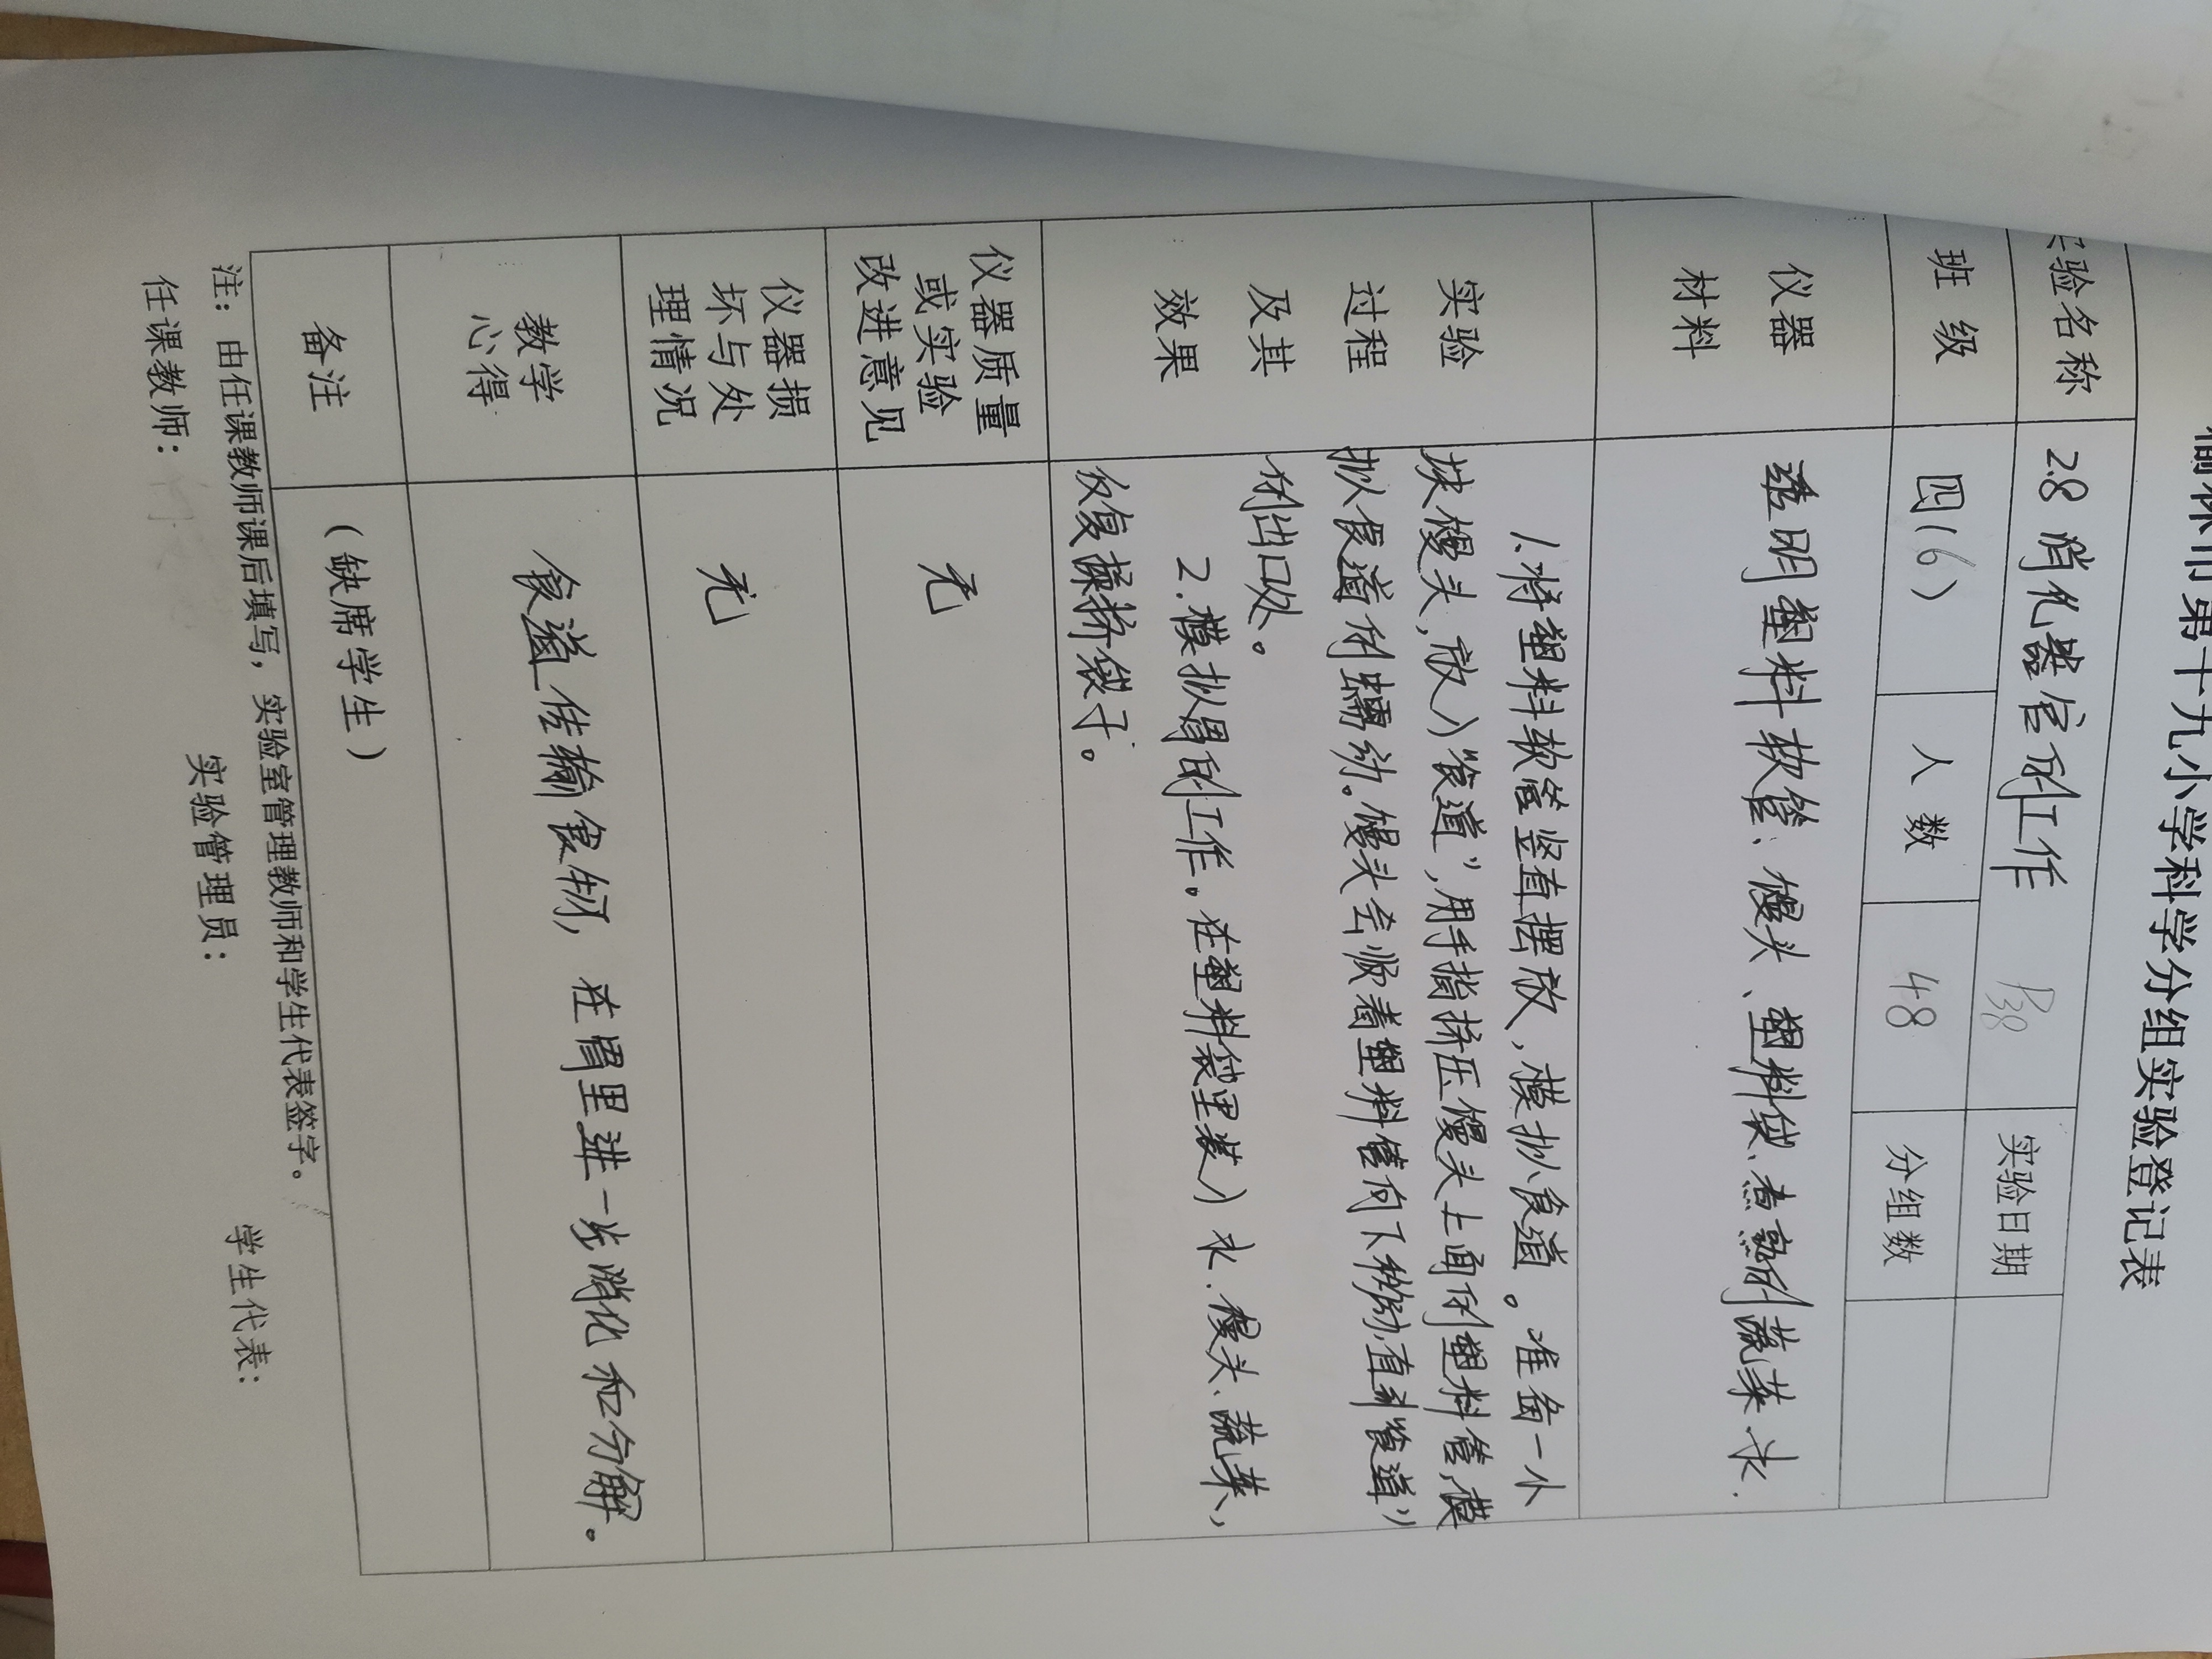 市第十九小学科学分组实验登记表
实验名称 2.8 消化器官的工作 P38 实验日期
班级 四(6) 人数 48 分组数
仪器材料 透明塑料软管、馒头、塑料袋、煮熟的蔬菜、水.
实验过程及其效果
1.将塑料软管竖直摆放，模拟食道。准备一小
块馒头，放入“食道”，用手指挤压馒头上面的塑料管，模
拟食道的蠕动。馒头会顺着塑料管向下移动，直到“食道”
的出口处。
2.模拟胃的工作。在塑料袋里装入水、馒头、蔬菜，
反复揉挤袋子。
仪器质量或实验改进意见 无
仪器损坏与处理情况 无
教学心得 食道传输食物，在胃里进一步消化和分解。
备注 （缺席学生）
注：由任课教师课后填写，实验室管理教师和学生代表签字。
任课教师： 实验管理员： 学生代表：